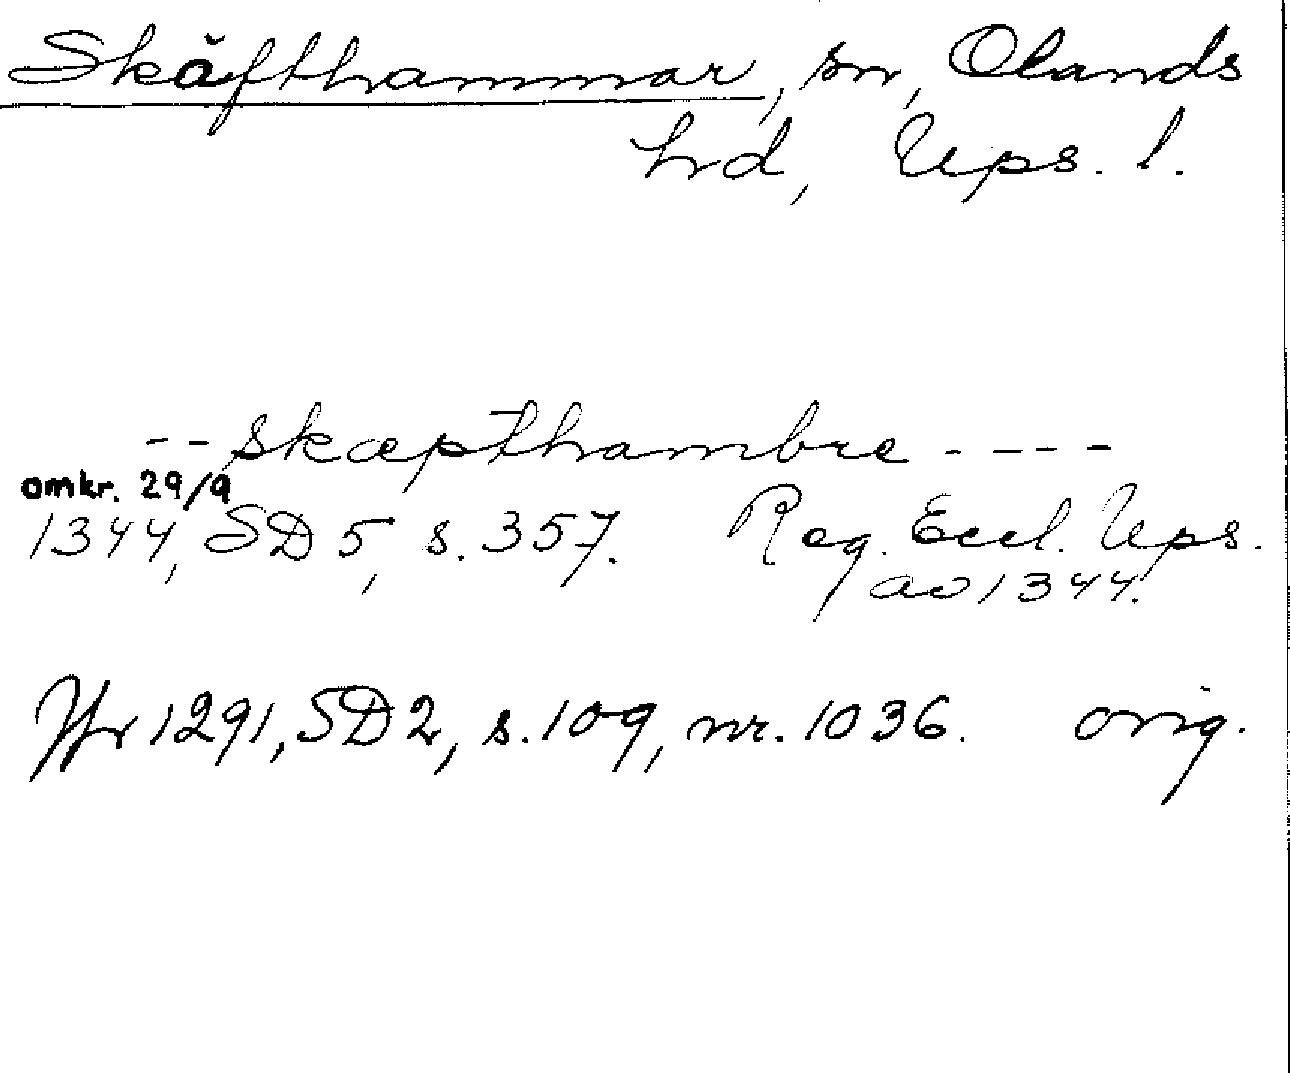 Skäfthammar, sn, Olands
hd, Ups. l.
-- skæpthambre ----
omkr. 29/9
1344, SD 5, s. 357. Reg. Eccl. Ups.
av 1344.
Jfr 1291, SD 2, s. 109, nr. 1036. orig.